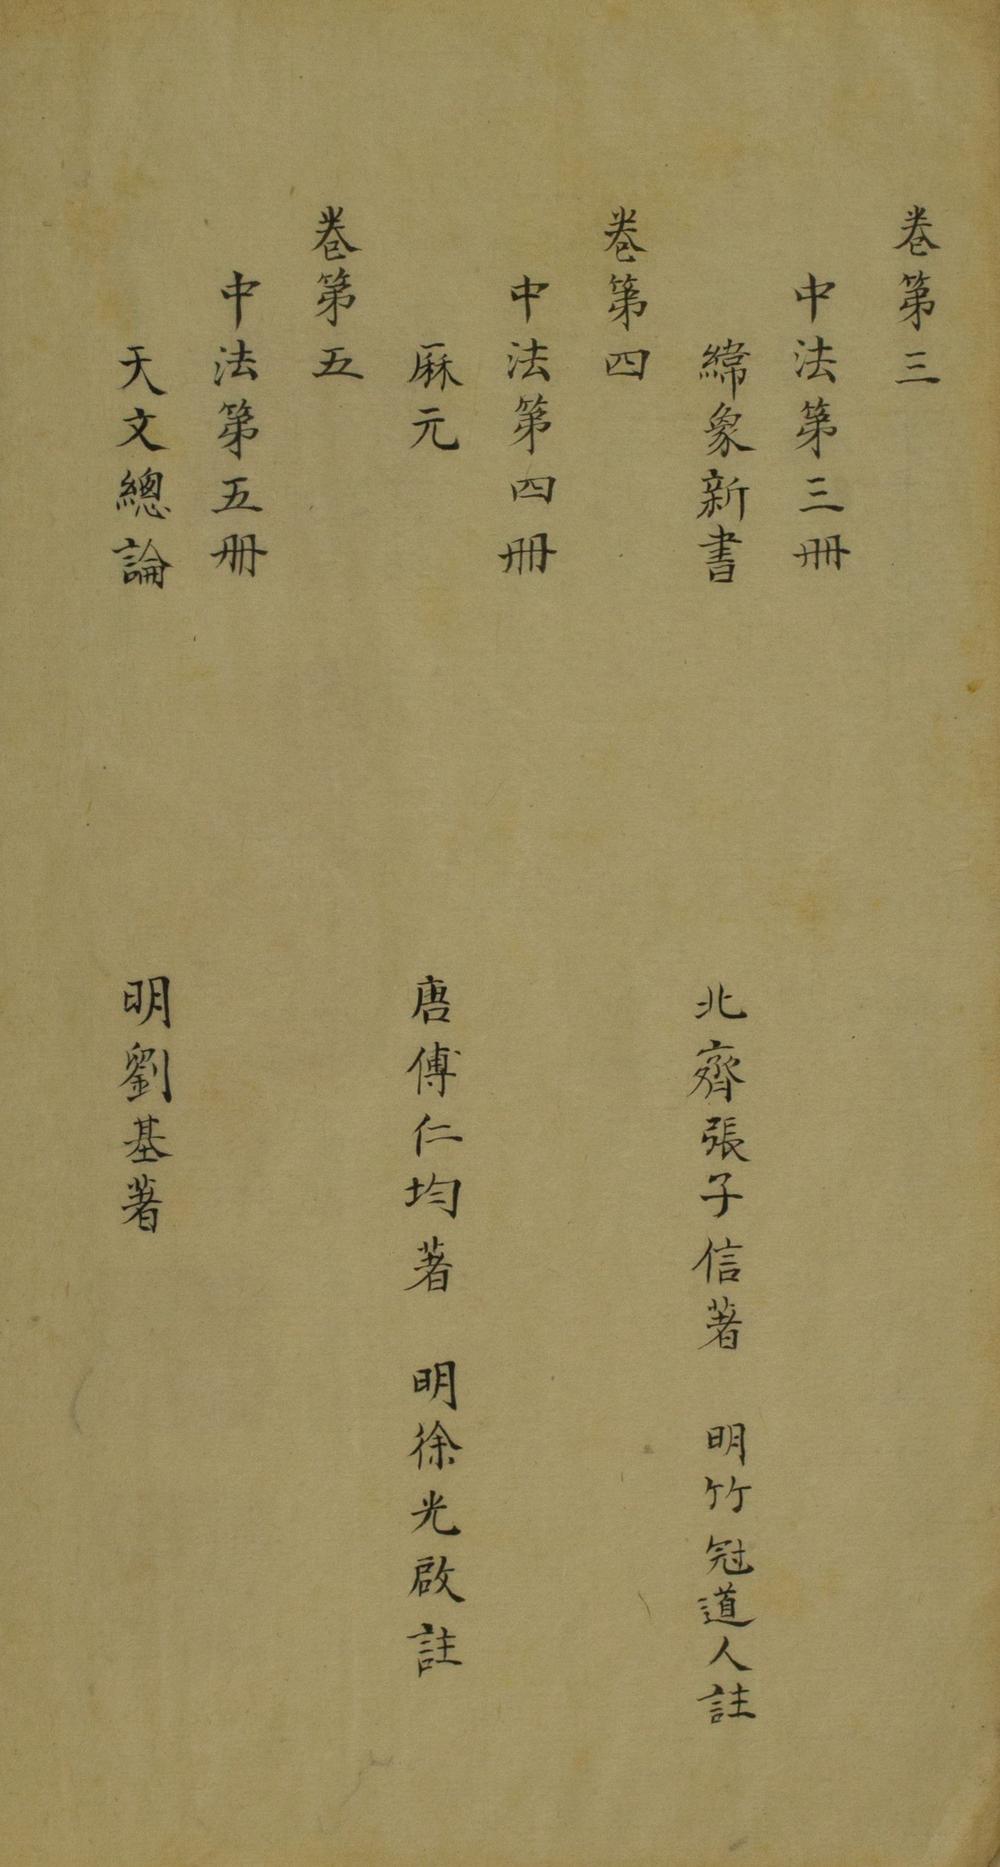 卷第三
中法第三冊
緯象新書　北齊張子信著　明竹冠道人註
卷第四
中法第四冊
厤元　唐傅仁均著　明徐光啟註
卷第五
中法第五冊
天文總論　明劉基著